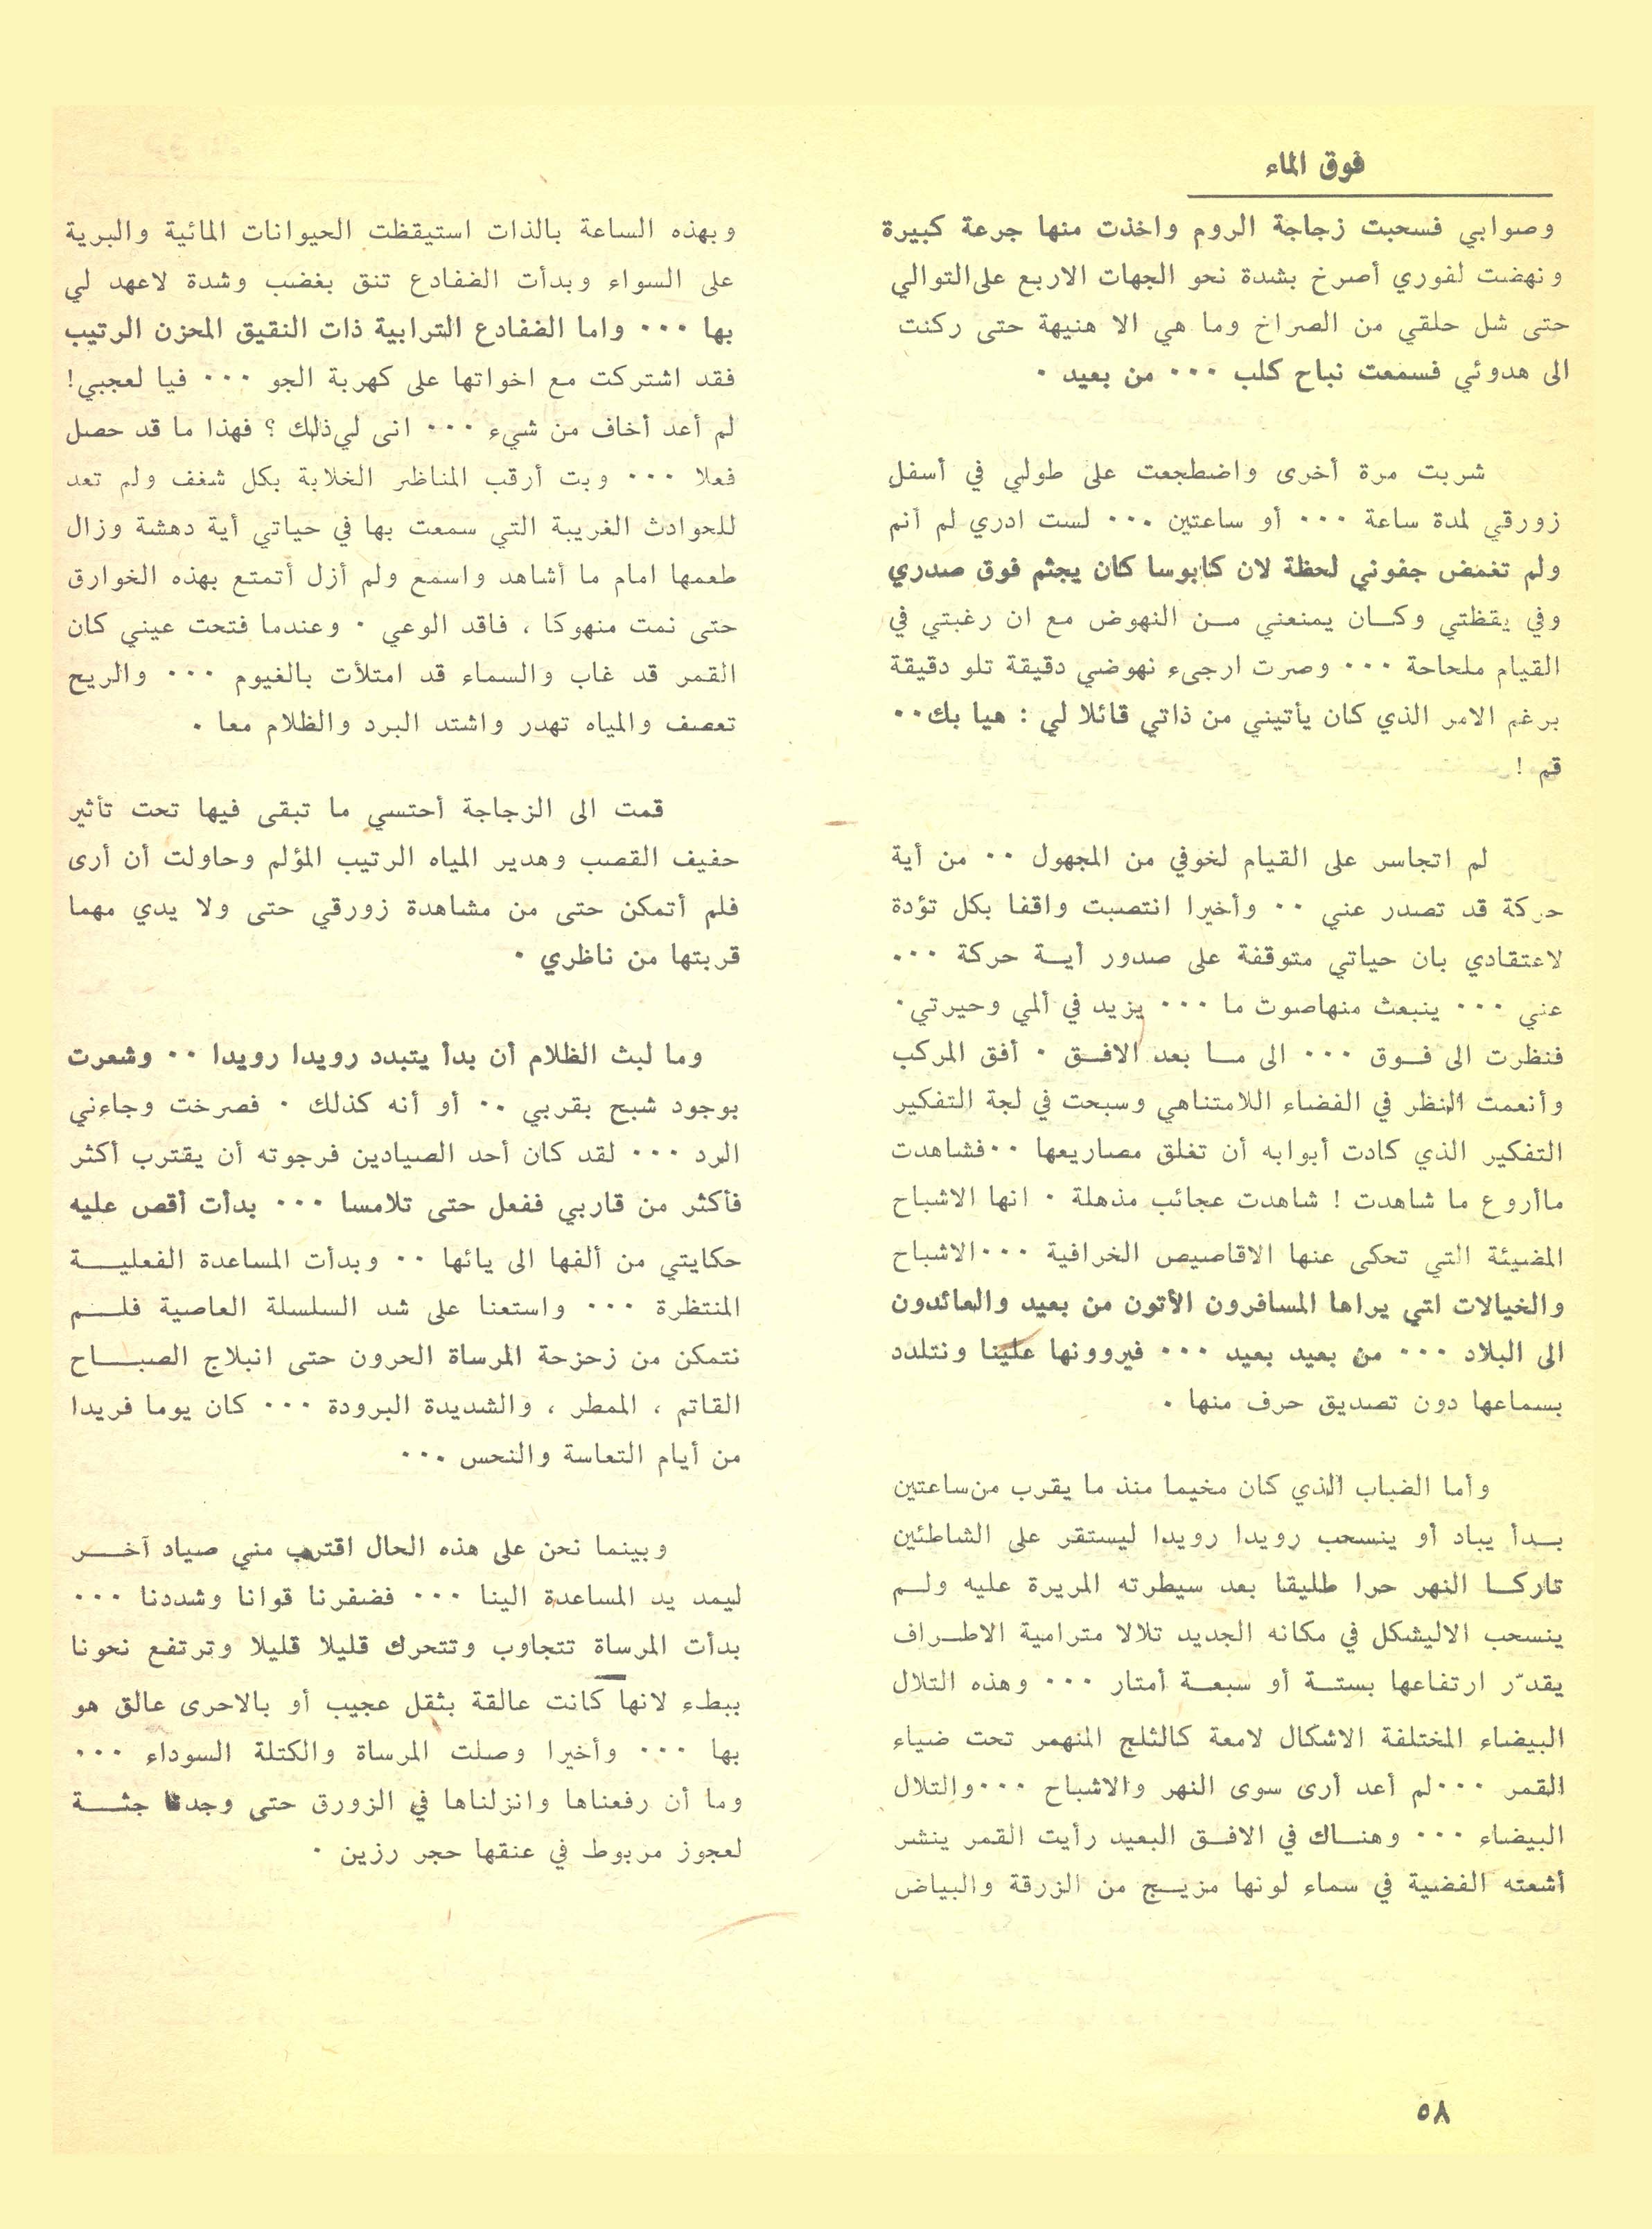 فوق الماء
وصوابي فسحبت زجاجة الروم واخذت منها جرعة كبيرة
ونهضت لفوري أصرخ بشدة نحو الجهات الاربع على التوالي
حتى شل حلقي من الصراخ وما هي الا هنيهة حتى ركنت
الى هدوئي فسمعت نباح كلب ٠٠٠ من بعيد ٠
شربت مرة أخرى واضطجعت على طولي في أسفل
زورقي لمدة ساعة ٠٠٠ أو ساعتين ٠٠٠ لست ادري لم أنم
ولم تغمض جفوني لحظة لان كابوسا كان يجثم فوق صدري
وفي يقظتي وكــان يمنعني مــن النهوض مع ان رغبتي في
القيام ملحاحة ٠٠٠ وصرت ارجىء نهوضي دقيقة تلو دقيقة
برغم الامر الذي كان يأتيني من ذاتي قائلا لي : هيا بك ٠٠
قم !
لم اتجاسر على القيام لخوفي من المجهول ٠٠ من أية
حركة قد تصدر عني ٠٠ وأخيرا انتصبت واقفا بكل تؤدة
لاعتقادي بان حياتي متوقفة على صدور أيــة حركة ٠٠٠
عني ٠٠٠ ينبعث منهاصوت ما ٠٠٠ يزيد في ألمي وحيرتي ٠
فنظرت الى فــوق ٠٠٠ الى مــا بعد الافــق ٠ أفق المركب
وأنعمت النظر في الفضاء اللامتناهي وسبحت في لجة التفكير
التفكير الذي كادت أبوابه أن تغلق مصاريعها ٠٠ فشاهدت
ماأروع ما شاهدت ! شاهدت عجائب مذهلة ٠ انها الاشباح
المضيئة التي تحكى عنها الاقاصيص الخرافية ٠٠٠ الاشباح
والخيالات التي يراها المسافرون الأتون من بعيد والعائدون
الى البلاد ٠٠٠ من بعيد بعيد ٠٠٠ فيروونها علينا ونتلذذ
بسماعها دون تصديق حرف منها ٠
وأما الضباب الذي كان مخيما منذ ما يقرب من ساعتين
بــدأ يباد أو ينسحب رويدا رويدا ليستقر على الشاطئين
تاركــا النهر حرا طليقا بعد سيطرته المريرة عليه ولــم
ينسحب الاليشكل في مكانه الجديد تلالا مترامية الاطــراف
يقدّر ارتفاعها بستــة أو سبعــة أمتار ٠٠٠ وهذه التلال
البيضاء المختلفة الاشكال لامعة كالثلج المنهمر تحت ضياء
القمر ٠٠٠ لم أعد أرى سوى النهر والاشباح ٠٠٠ والتلال
البيضاء ٠٠٠ وهنــاك في الافــق البعيد رأيت القمر ينشر
أشعته الفضية في سماء لونها مزيــج من الزرقة والبياض
وبهذه الساعة بالذات استيقظت الحيوانات المائية والبرية
على السواء وبدأت الضفادع تنق بغضب وشدة لاعهد لي
بها ٠٠٠ واما الضفادع الترابية ذات النقيق المحزن الرتيب
فقد اشتركت مع اخواتها على كهربة الجو ٠٠٠ فيا لعجبي!
لم أعد أخاف من شيء ٠٠٠ انى لي ذلك ؟ فهذا ما قد حصل
فعلا ٠٠٠ وبت أرقب المناظر الخلابة بكل شغف ولم تعد
للحوادث الغريبة التي سمعت بها في حياتي أية دهشة وزال
طعمها امام ما أشاهد واسمع ولم أزل أتمتع بهذه الخوارق
حتى نمت منهوكا ، فاقد الوعي ٠ وعندما فتحت عيني كان
القمر قد غاب والسماء قد امتلأت بالغيوم ٠٠٠ والريح
تعصف والمياه تهدر واشتد البرد والظلام معا ٠
قمت الى الزجاجة أحتسي ما تبقى فيها تحت تأثير
حفيف القصب وهدير المياه الرتيب المؤلم وحاولت أن أرى
فلم أتمكن حتى من مشاهدة زورقي حتى ولا يدي مهما
قربتها من ناظري ٠
وما لبث الظلام أن بدأ يتبدد رويدا رويدا ٠٠ وشعرت
بوجود شبح بقربي ٠٠ أو أنه كذلك ٠ فصرخت وجاءني
الرد ٠٠٠ لقد كان أحد الصيادين فرجوته أن يقترب أكثر
فأكثر من قاربي ففعل حتى تلامسا ٠٠٠ بدأت أقص عليه
حكايتي من ألفها الى يائها ٠٠ وبدأت المساعدة الفعليــة
المنتظرة ٠٠٠ واستعنا على شد السلسلة العاصية فلــم
نتمكن من زحزحة المرساة الحرون حتى انبلاج الصبــاح
القاتم ، الممطر ، والشديدة البرودة ٠٠٠ كان يوما فريدا
من أيام التعاسة والنحس ٠٠٠
وبينما نحن على هذه الحال اقترب مني صياد آخــر
ليمد يد المساعدة الينا ٠٠٠ فضفرنا قوانا وشددنا ٠٠٠
بدأت المرساة تتجاوب وتتحرك قليلا قليلا وترتفع نحونا
ببطء لانها كانت عالقة بثقل عجيب أو بالاحرى عالق هو
بها ٠٠٠ وأخيرا وصلت المرساة والكتلة السوداء ٠٠٠
وما أن رفعناها وانزلناها في الزورق حتى وجدنا جثــة
لعجوز مربوط في عنقها حجر رزين ٠
٥٨